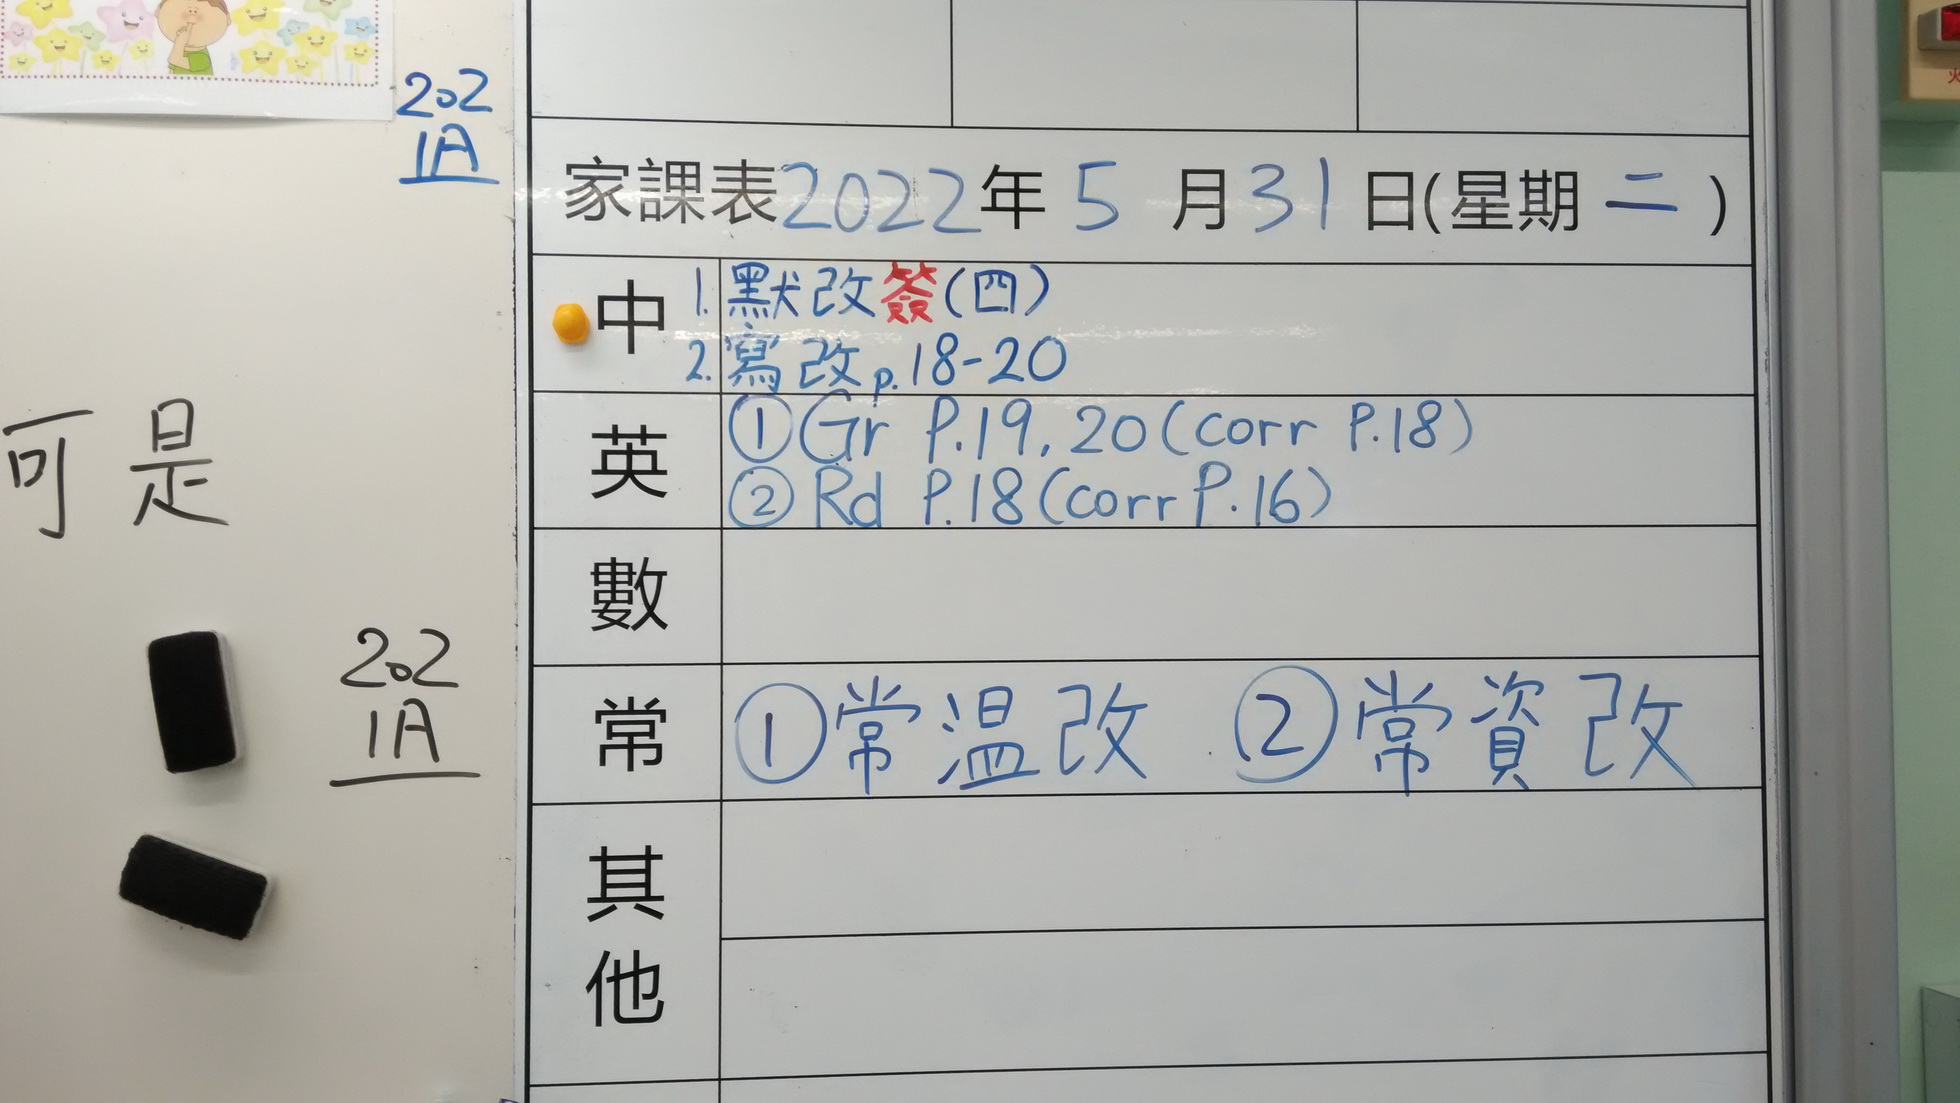 202
1A
家課表2022年5月31日(星期二)
中
1. 默改簽(四)
2. 寫改p.18-20
英
① Gr P.19, 20 (corr P.18)
② Rd P.18 (corr P.16)
數
常
① 常温改 ② 常資改
其他
可是
202
1A
火